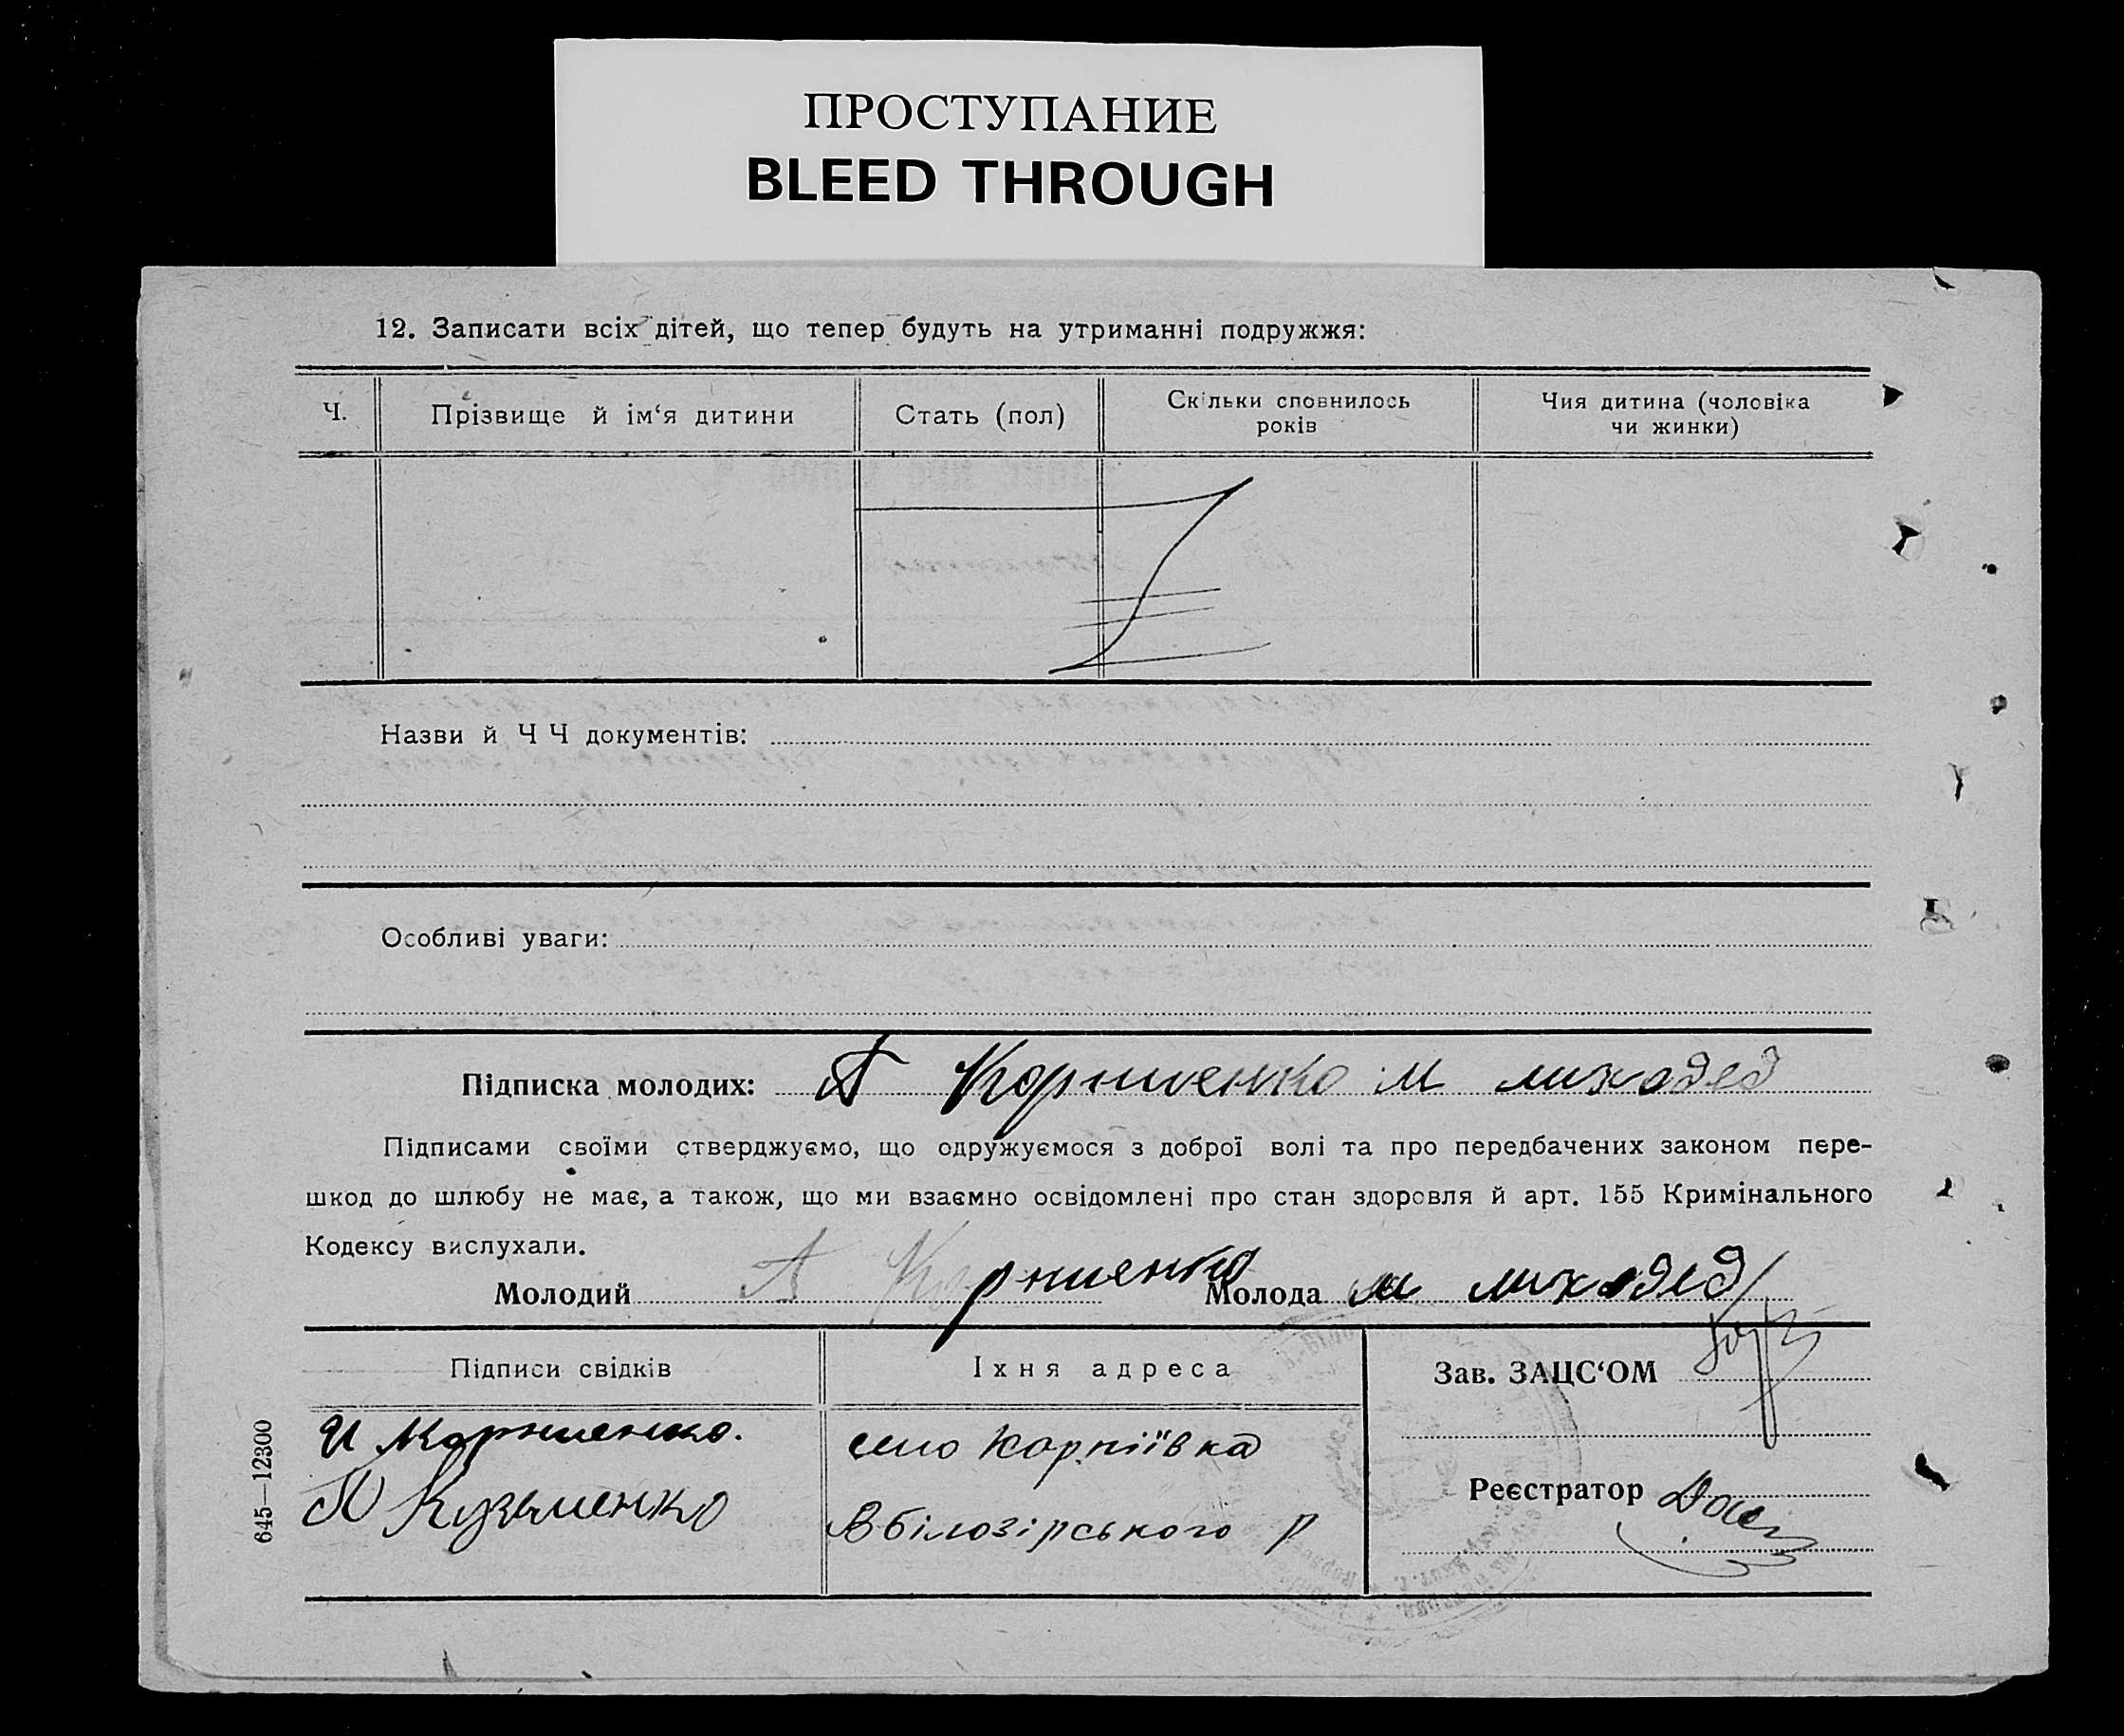 ПРОСТУПАНИЕ
BLEED THROUGH
12. Записати всіх дітей, що тепер будуть на утриманні подружжя:
Ч.
Прізвище й ім‘я дитини
Стать (пол)
Скільки сповнилось
років
Чия дитина (чоловіка
чи жинки)
Назви й Ч Ч документів:
Особливі уваги:
Підписка молодих: А Корниенко М лиходед
Підписами своїми стверджуємо, що одружуємося з доброї волі та про передбачених законом пере-
шкод до шлюбу не має, а також, що ми взаємно освідомлені про стан здоровля й арт. 155 Кримінального
Кодексу вислухали.
Молодий А Корниенко Молода м лиходед
Підписи свідків
Іхня адреса
Зав. ЗАЦС‘ОМ
И Корниенко.
село Карпіївка
Кузьменко
Вбілозірського р
Реєстратор
645—12300